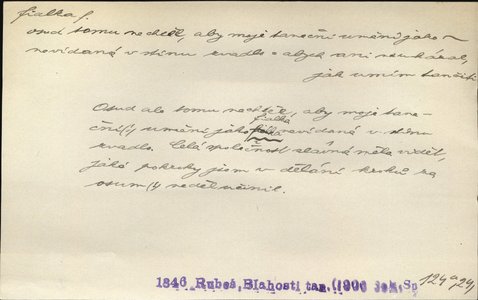 fialka f.
osud tomu nechtěl, aby moje taneční umění jako ~
nevídaná v stínu kvadlo = abych ani neukázal,
jak umím tančiti
Osud ale tomu nechtěl, aby moje tane-
ční(!) umění jako fialka nevídaná v stínu
kvadlo. Celá společnost slavná měla vidět,
jaké pokroky jsem v dělání kroků za
osum (!) neděl učinil.
1846 Rubeš, Blahosti tan. (1906 Sp
124 a 29)